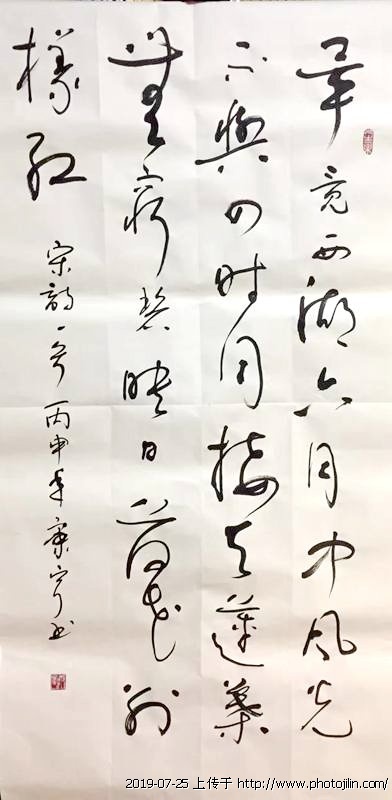 毕竟西湖六月中风光
不与四时同接天莲叶
无穷碧映日荷花别
样红
宋诗一首丙申年康宁书
2019-07-25 上传于 http://www.photojilin.com/